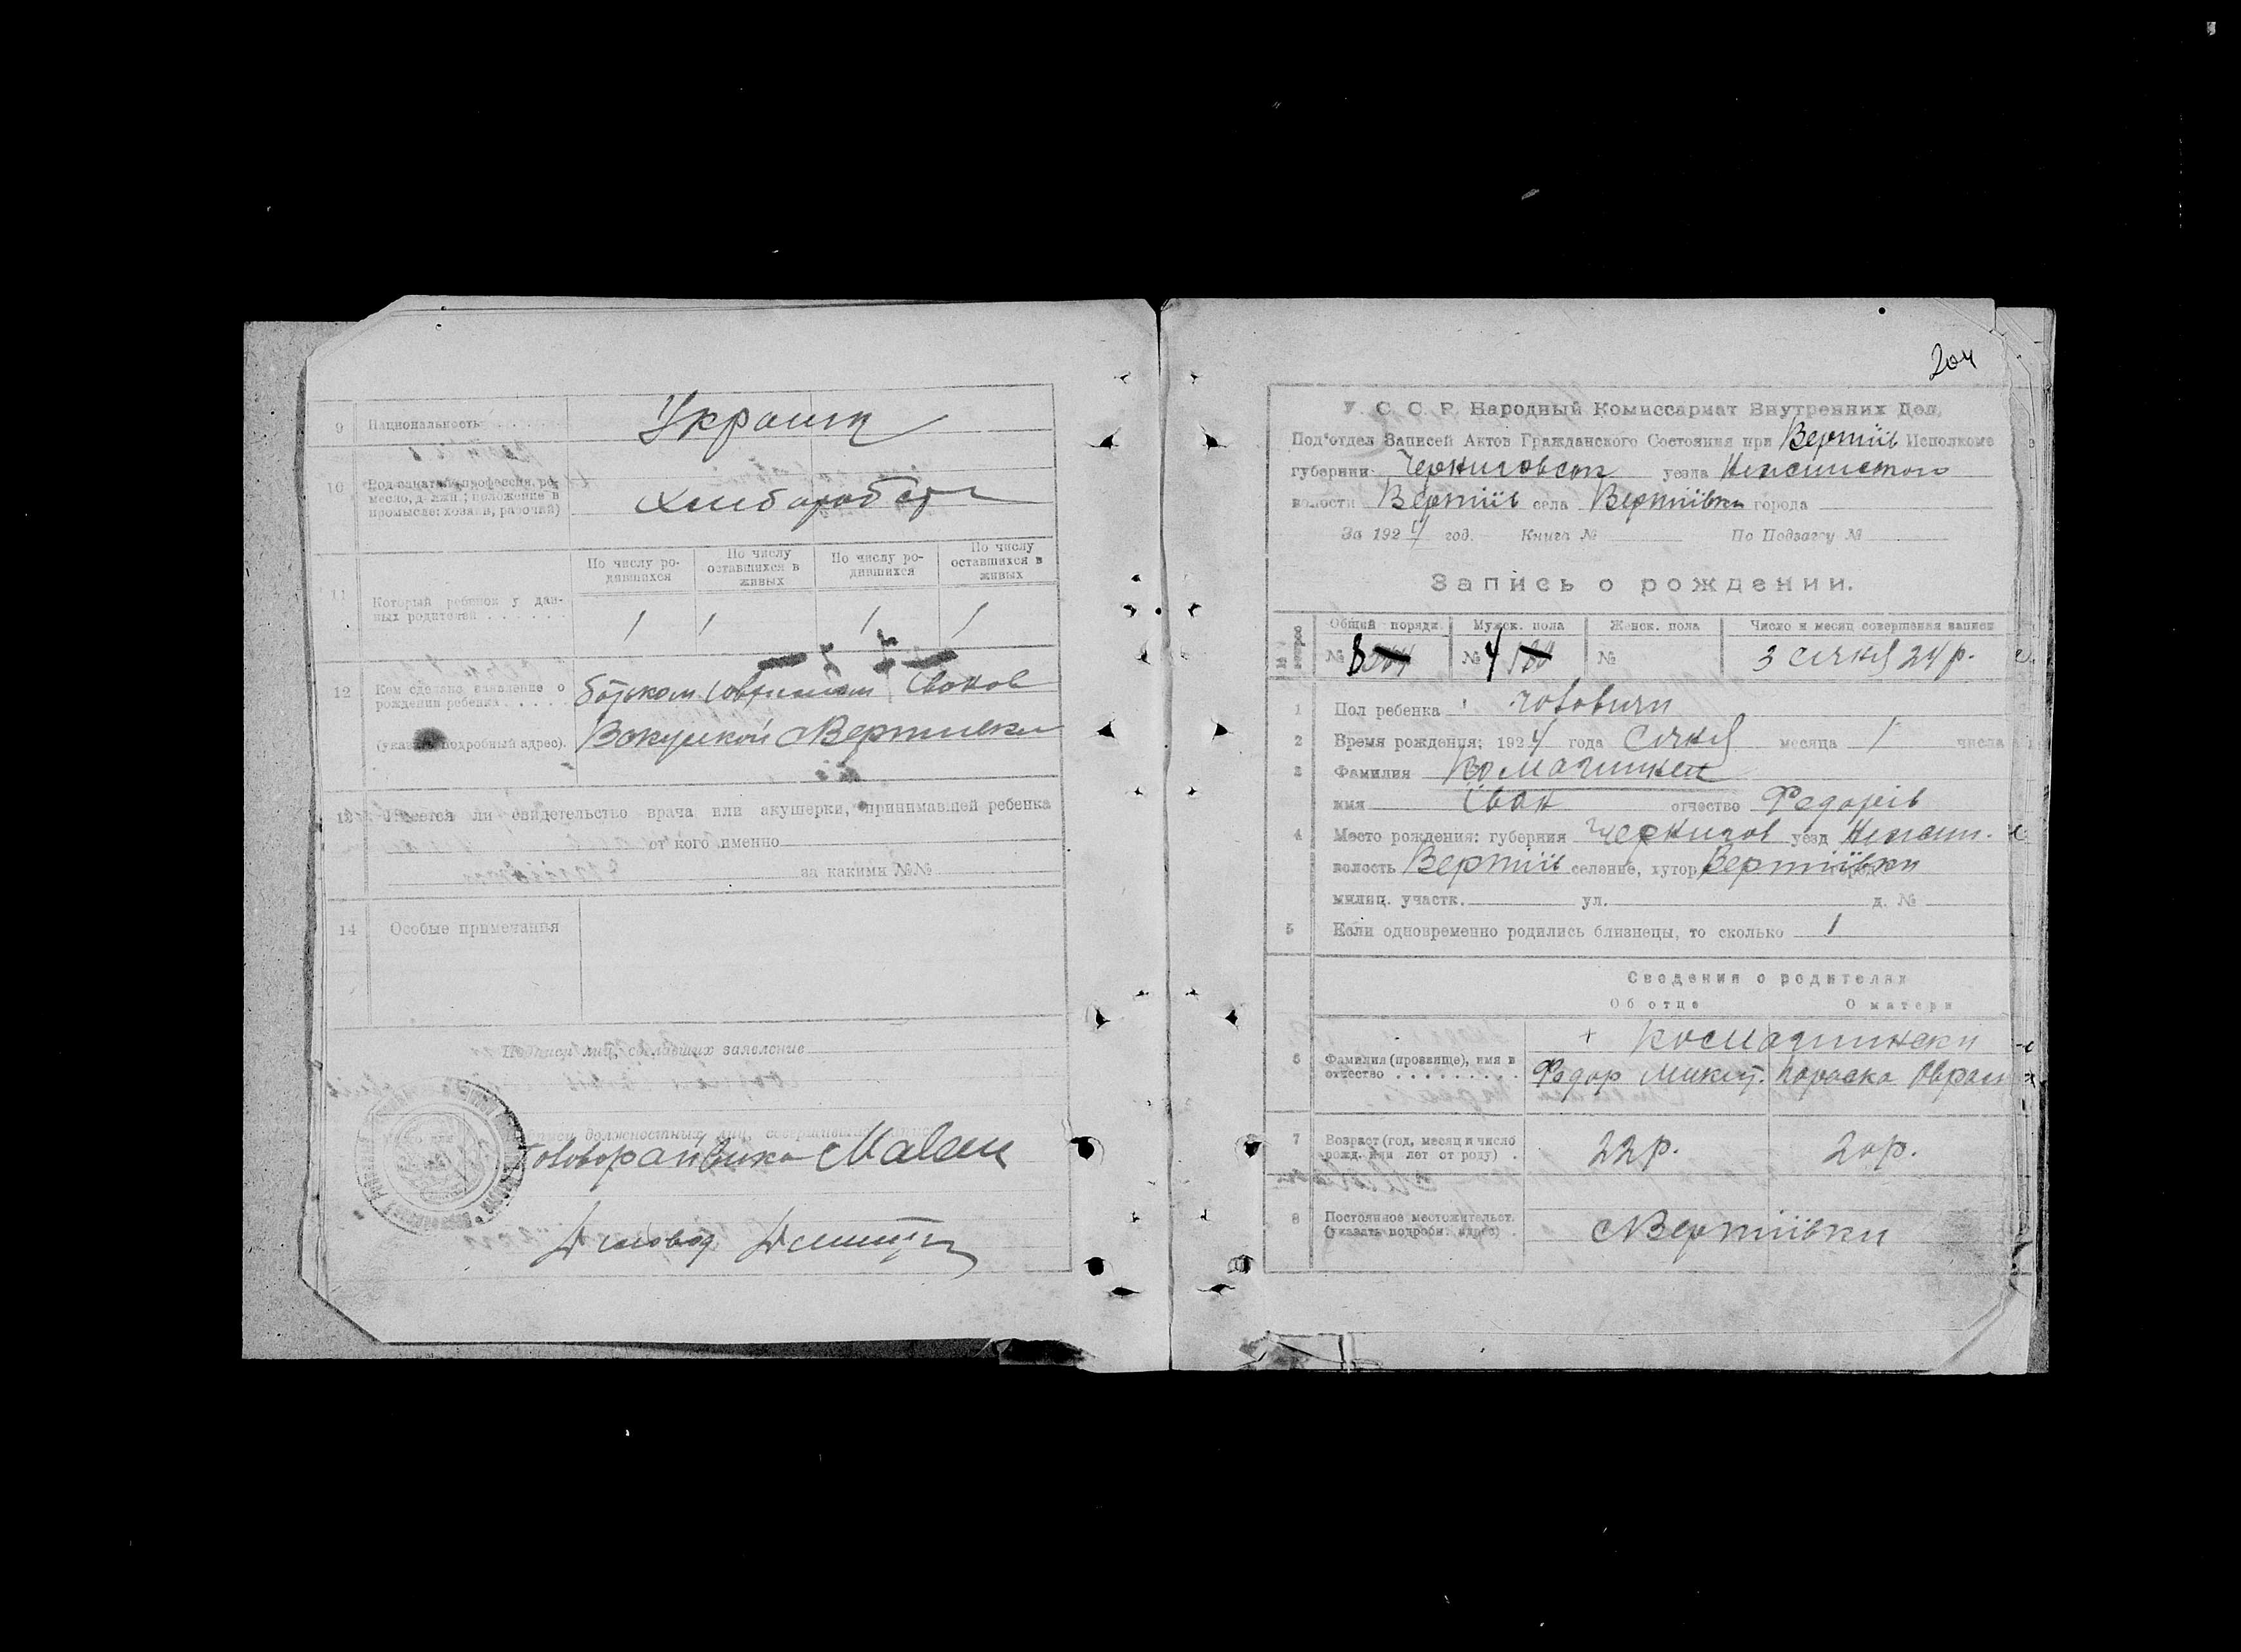 9 Национальность . . . . Украин
10 Род занятий, профессия, ре-
месло, должн.; положение в
промысле: хозяин, рабочий) Хлибороб
11 Который ребенок у дан-
ных родителей . . . . . .
По числу ро-
дившихся
По числу
оставшихся в
живых
По числу ро-
дившихся
По числу
оставшихся в
живых
1 1 1 1
12 Кем сделано заявление о
рождении ребенка . . . . .
(указать подробный адрес).
батьком
Вертиевки
13 Имеется ли свидетельство врача или акушерки, принимавшей ребенка
от кого именно
за какими №№
14 Особые примечания
Подписи лиц, сделавших заявление
Подписи должностных лиц, совершивших запись
Голова
Діловод
204
У. С. С. Р. Народный Комиссариат Внутренних Дел,
Под'отдел Записей Актов Гражданского Состояния при Вертіїв Исполкоме
губернии Черниговск уезда
волости Вертіїв села Вертіївки города
За 1924 год. Книга № По Подзагсу №
Запись о рождении.
Общий порядк. Мужск. пола Женск. пола Число и месяц совершения записи
№ 8 № 4 № 3 січня 24 р.
1 Пол ребенка чоловичи
2 Время рождения: 1924 года Січня месяца 1 числа
3 Фамилия
имя Іван отчество Федорів
4 Место рождения: губерния Чернигов уезд Нежин.
волость Вертіїв селение, хутор Вертіївки
милиц. участк. ул. д. №
5 Если одновременно родились близнецы, то сколько 1
Сведения о родителях
Об отце О матери
6 Фамилия (прозвище), имя и
отчество . . . . . . . . .
Федор Микит. Параска Аврам
7 Возраст (год, месяц и число
рожд. или лет от роду) . 22 р. 20 р.
8 Постоянное местожительст.
(указать подробн. адрес) . с Вертіївки